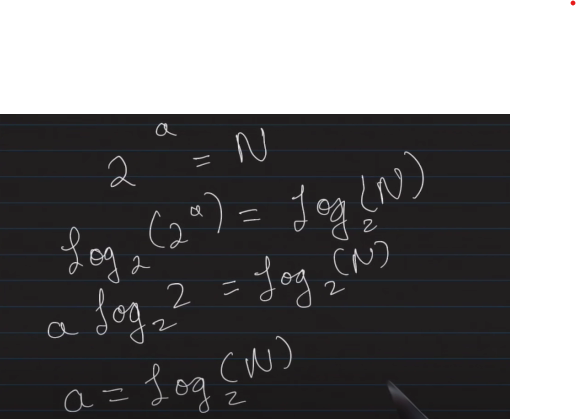 2^a = N
log₂(2^a) = log₂(N)
a log₂ 2 = log₂(N)
a = log₂(N)